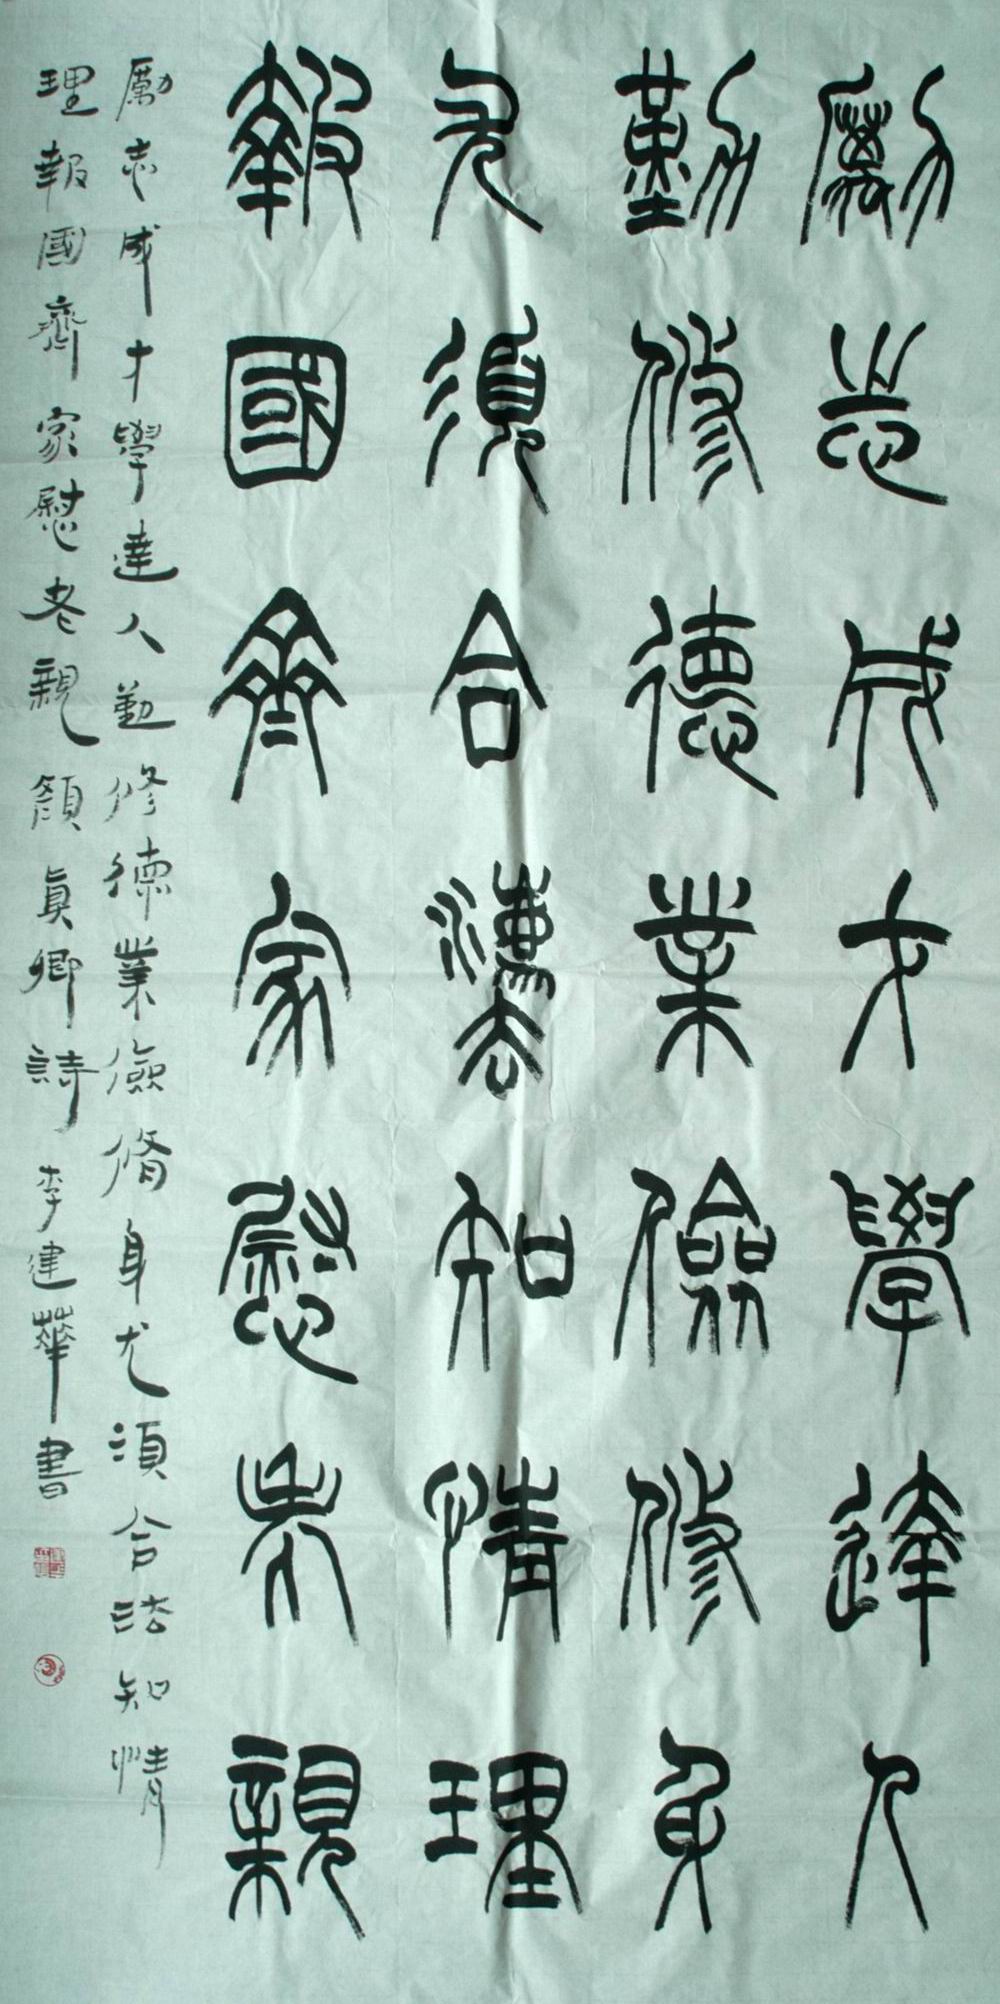 勵志成才學達人
勤修德業儉修身
尤須合灋知情理
報國齊家慰老親
厲志成才學達人勤修德業儉脩身尤須合法知情
理報國齊家慰老親顏真卿詩李建華書